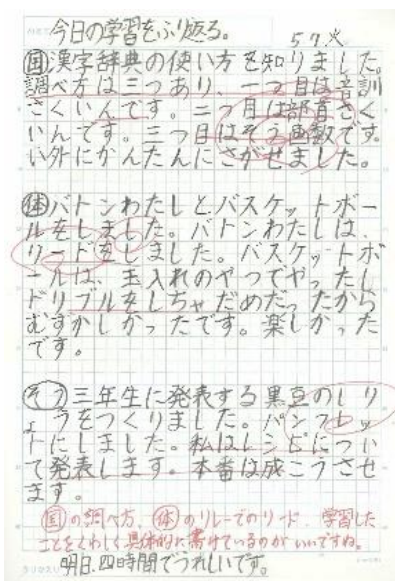 今日の学習をふり返る。
5 7 火
国漢字辞典の使い方を知りました。
調べ方は三つあり、一つ目は音訓
さくいんです。二つ目は部首さく
いんです。三つ目はそう画数です。
い外にかんたんにさがせました。
体バトンわたしとバスケットボー
ルをしました。バトンわたしは、
リードをしました。バスケットボ
ールは、玉入れのやつでやったし
ドリブルをしちゃだめだったから
むずかしかったです。楽しかった
です。
そう三年生に発表する黒豆のしり
ょうをつくりました。パンフレッ
トにしました。私はレシピについ
て発表します。本番は成こうさせ
ます。
国の調べ方、体のリレーでのリード、学習した
ことをくわしく具体的に書けているのがいいですね。
明日、四時間でうれしいです。